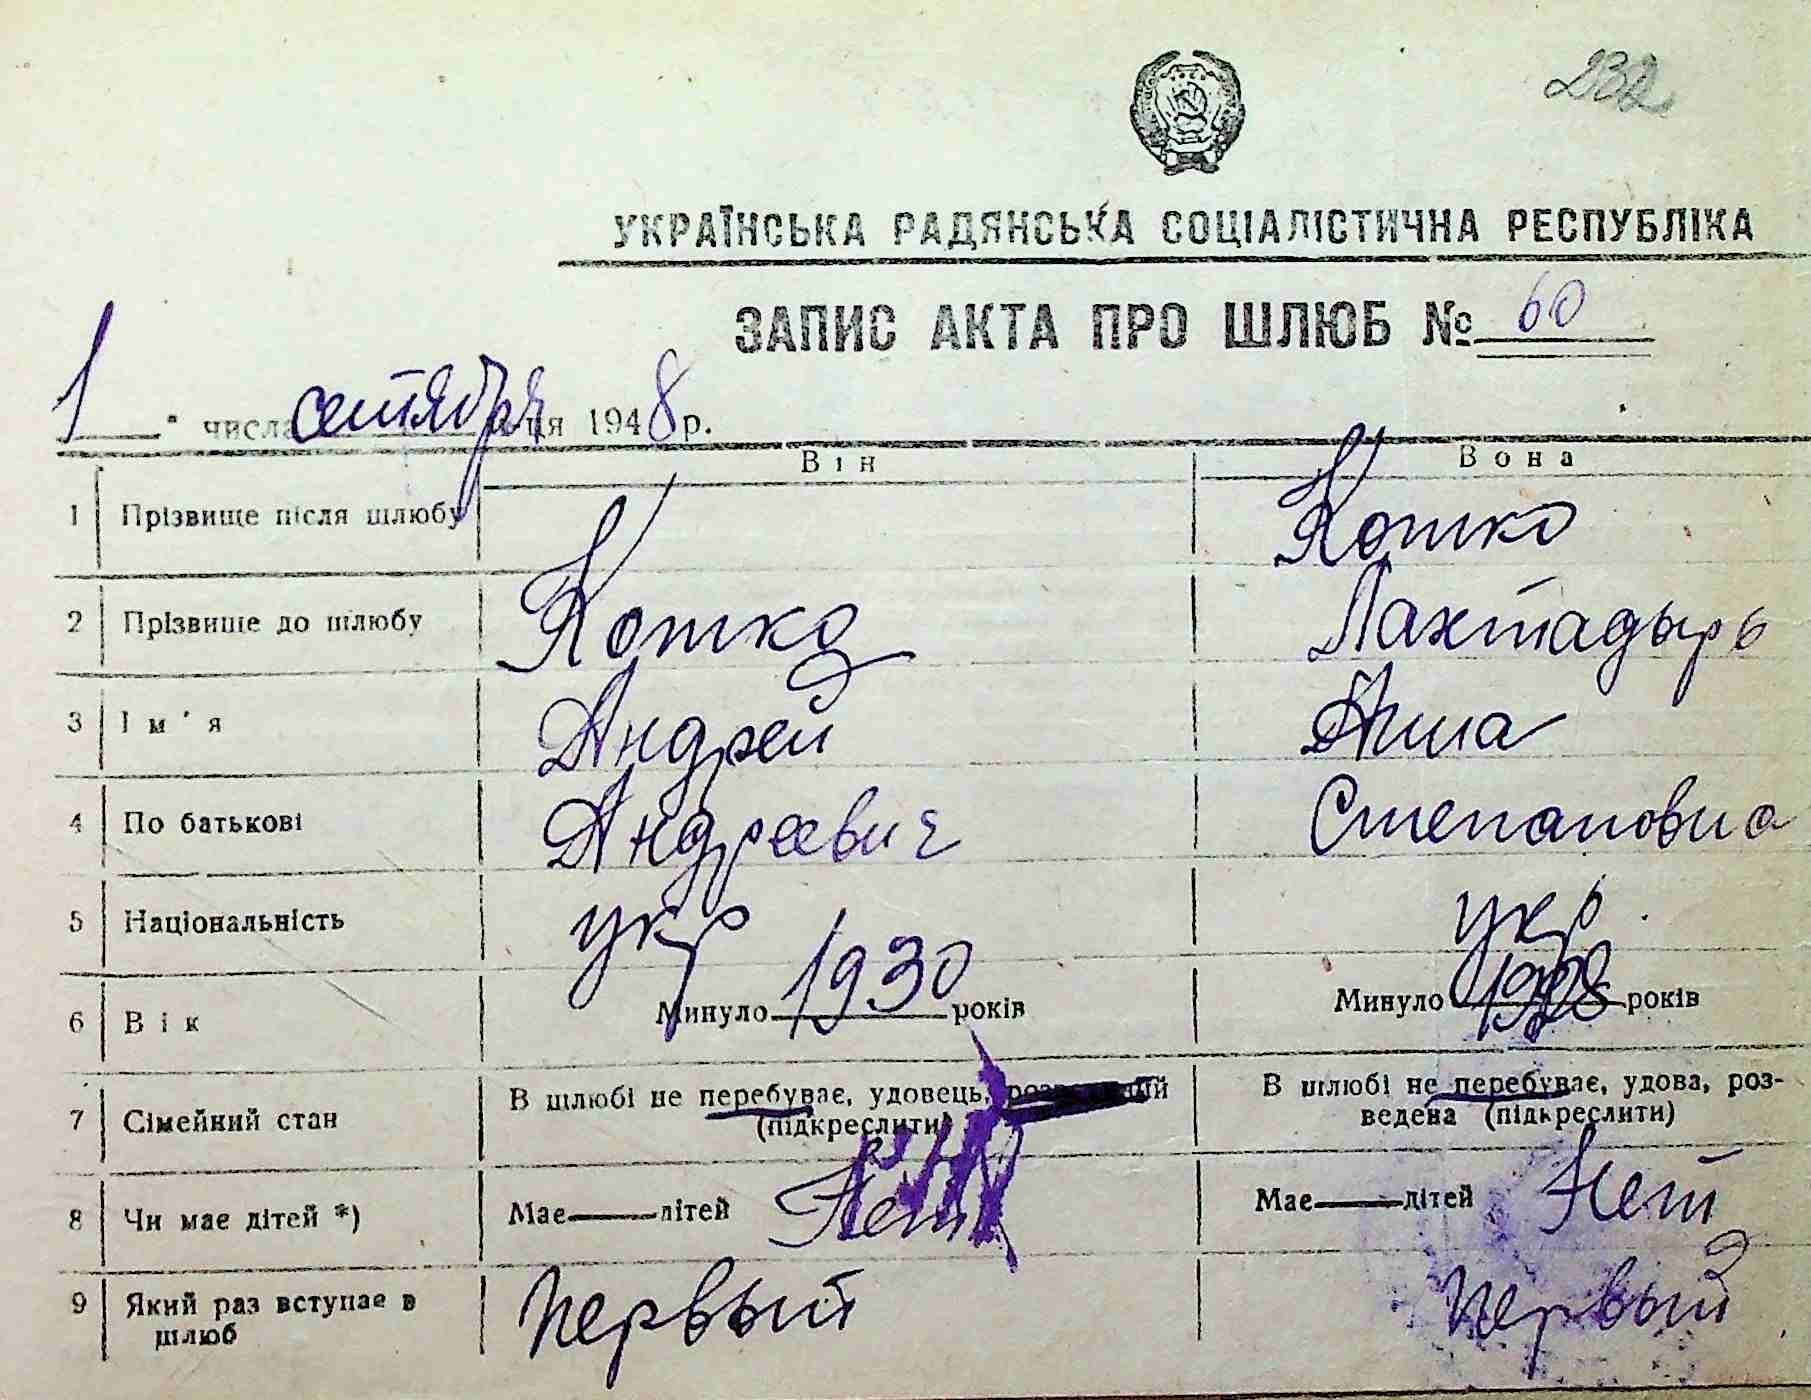 232
УКРАЇНСЬКА РАДЯНСЬКА СОЦІАЛІСТИЧНА РЕСПУБЛІКА
ЗАПИС АКТА ПРО ШЛЮБ № 60
1 " числа сентября ця 1948 р.
Він Вона
1 Прізвище після шлюбу Кошко
2 Прізвище до шлюбу Кошко Лахтадырь
3 Ім'я Андрей Анна
4 По батькові Андреевич Степановна
5 Національність укр укр.
6 Вік Минуло 1930 років Минуло 1928 років
7 Сімейний стан В шлюбі не перебуває, удовець, В шлюбі не перебуває, удова, роз-
(підкреслити) ведена (підкреслити)
8 Чи має дітей *) Має — літей Нет Має — дітей Нет
9 Який раз вступає в Первый Первый
шлюб